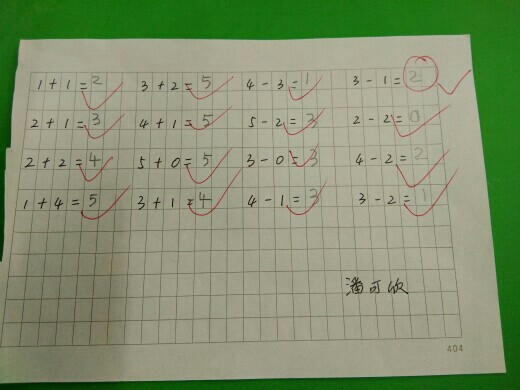 1+1=2 3+2=5 4-3=1 3-1=2
2+1=3 4+1=5 5-2=3 2-2=0
2+2=4 5+0=5 3-0=3 4-2=2
1+4=5 3+1=4 4-1=3 3-2=1
潘可欣
404